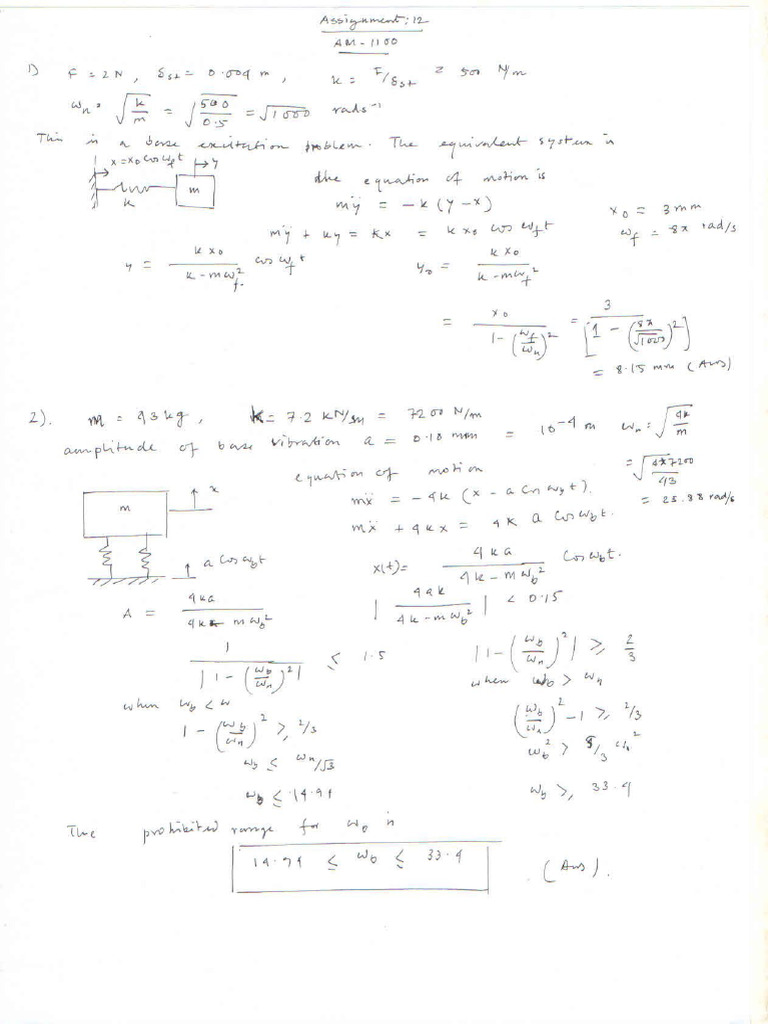 Assignment: 12
AM-1100
1) F = 2N, δst = 0.004 m, k = F/δst = 500 N/m
ωn = √(k/m) = √(500/0.5) = √1000 rads⁻¹
This is a base excitation problem. The equivalent system is
x = x0 cos ωf t → y
m
k
the equation of motion is
mÿ = -k (y - x)
x0 = 3 mm
mÿ + ky = kx = k x0 cos ωf t
ωf = 8π rad/s
y = k x0 / (k - mωf²) cos ωf t
y0 = k x0 / (k - mωf²)
= x0 / (1 - (ωf/ωn)²) = 3 / [1 - (8π/√1000)²]
= 8.15 mm (Ans)
2). m = 43 kg, k = 7.2 kN/m = 7200 N/m
amplitude of base vibration a = 0.10 mm = 10⁻⁴ m ωn = √(4k/m)
= √(4×7200/43)
= 25.88 rad/s
equation of motion
mẍ = -4k (x - a cos ωb t).
mẍ + 4kx = 4k a cos ωb t.
m
x
a cos ωb t
x(t) = 4ka / (4k - mωb²) cos ωb t.
A = 4ka / (4k - mωb²)
| 4ak / (4k - mωb²) | < 0.15
1 / |1 - (ωb/ωn)²| ≤ 1.5
|1 - (ωb/ωn)²| ≥ 2/3
when ωb < ω
when ωb > ωn
1 - (ωb/ωn)² ≥ 2/3
(ωb/ωn)² - 1 ≥ 2/3
ωb ≤ ωn/√3
ωb² > 5/3 ωn²
ωb ≤ 14.94
ωb ≥ 33.4
The prohibited range for ωb is
14.94 ≤ ωb ≤ 33.4
(Ans).